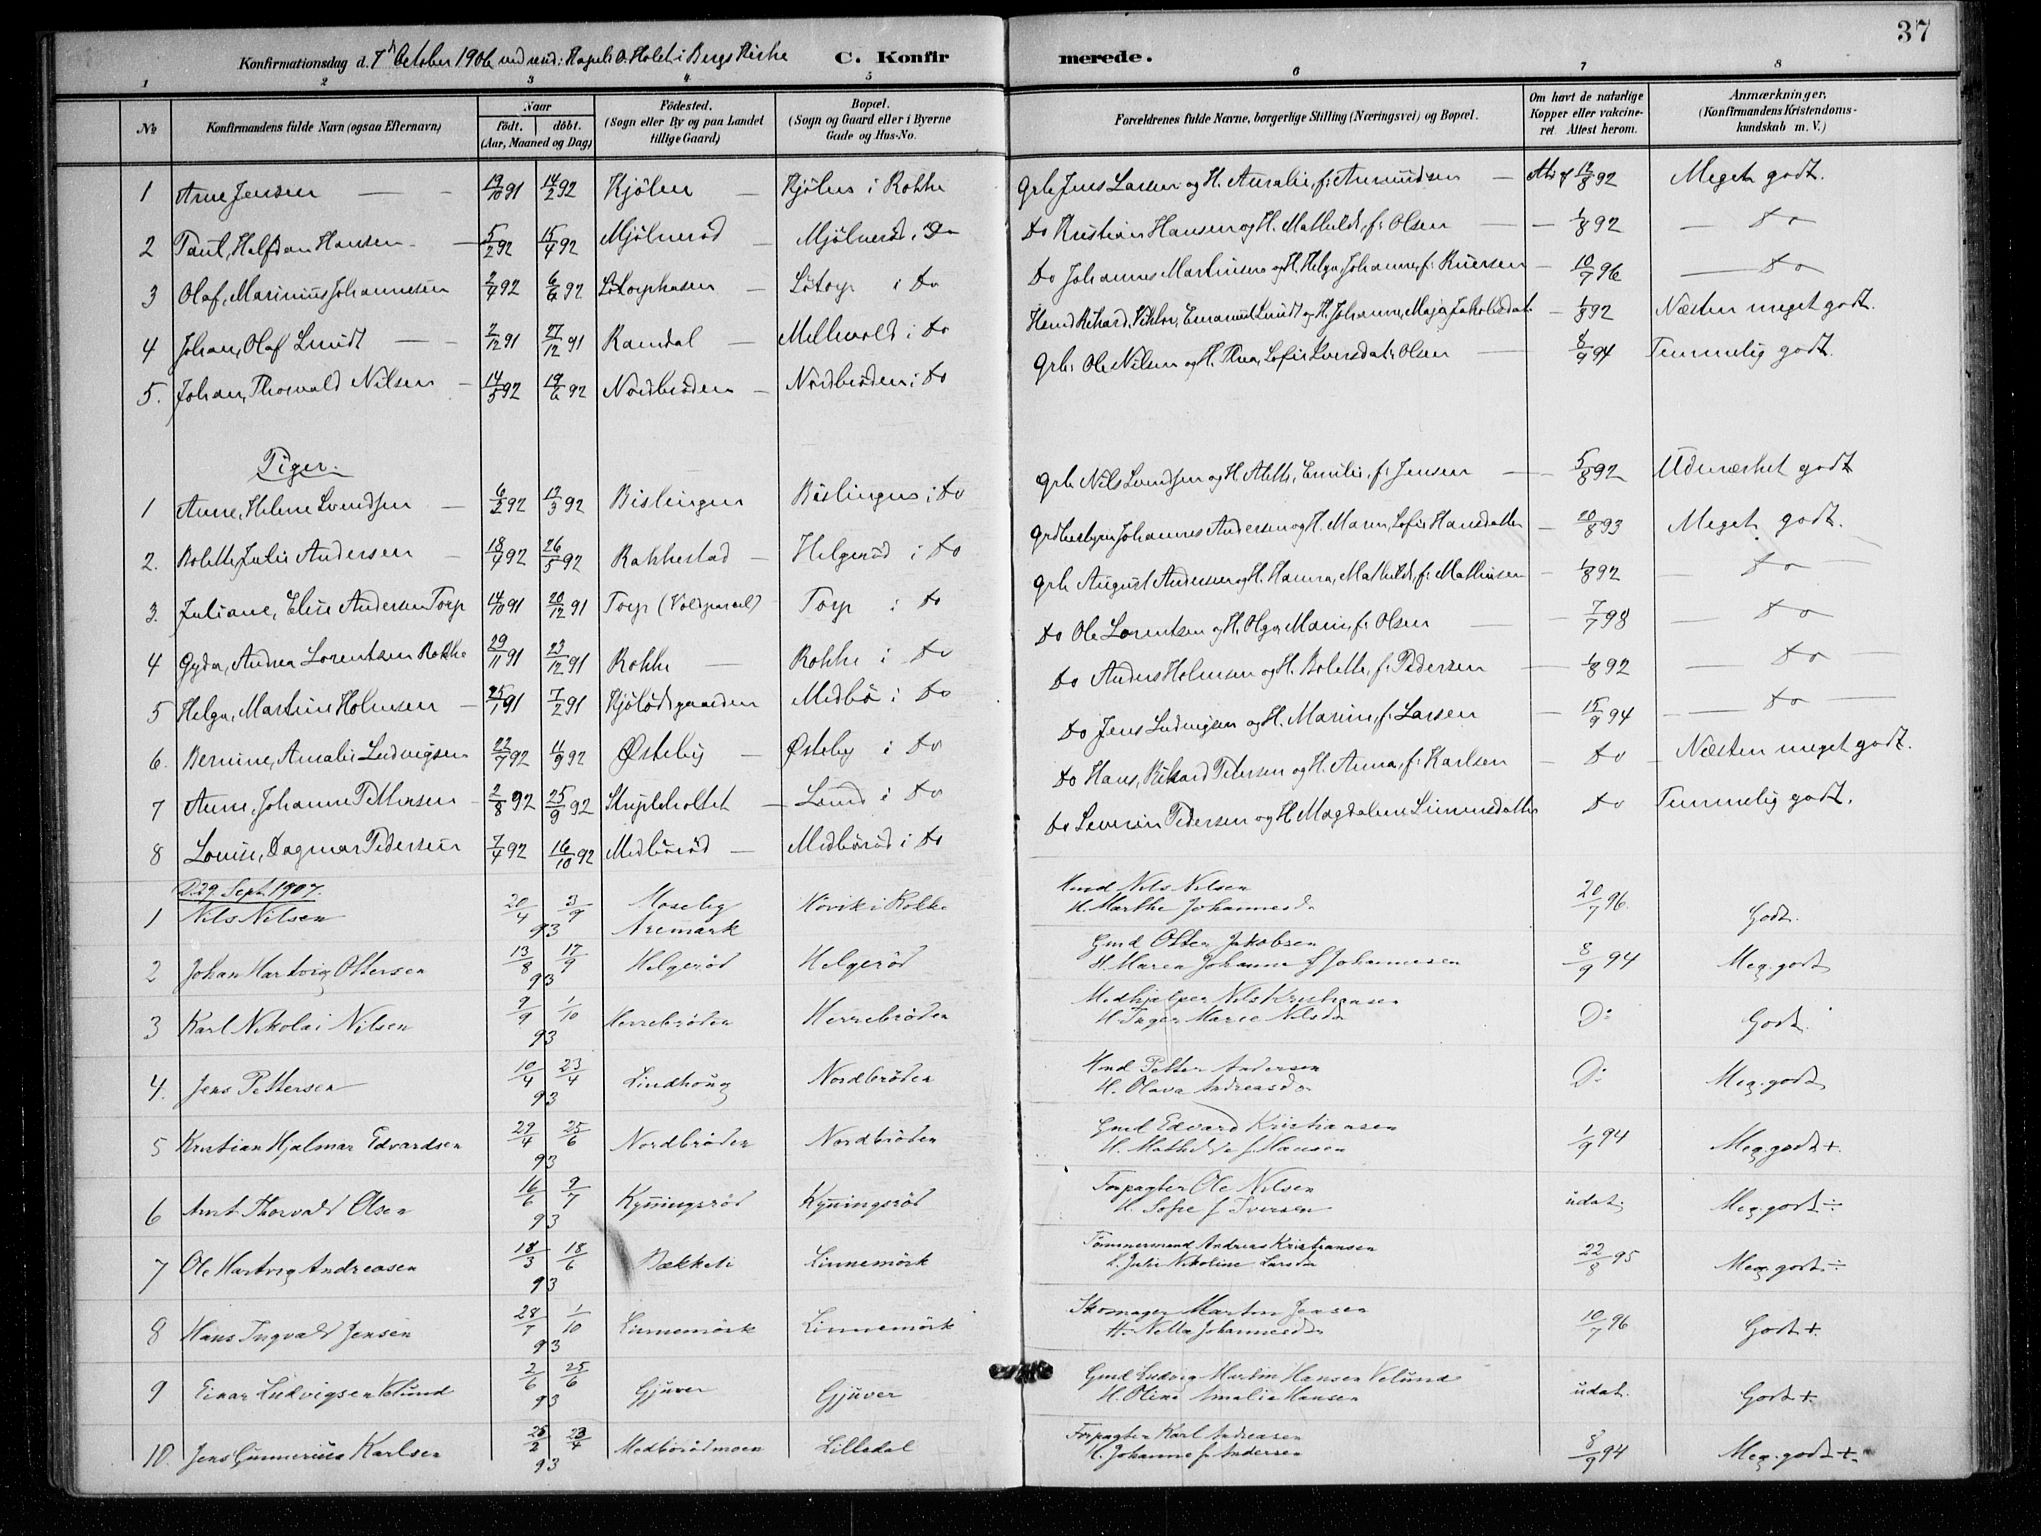 37
Konfirmationsdag d. 7d October 1906 ved resid: Kapel: O. Holst i Bergs Kirke C. Konfirmerede.
1 2 3 4 5 6 7 8
No Konfirmandens fulde Navn (ogsaa Efternavn) Naar født. døbt. (Aar, Maaned og Dag) Fødested. (Sogn eller By og paa Landet tillige Gaard) Bopæl. (Sogn og Gaard eller i Byerne Gade og Hus-No. Forældrenes fulde Navne, borgerlige Stilling (Næringsvei) og Bopæl. Om havt de naturlige Kopper eller vakcineret Attest herom. Anmærkninger. (Konfirmandens Kristendomskundskab m. V.)
1 Arne Jensen 19/10 91 14/2 92 Kjølen Kjølen i Rokke Grbr Jens Larsen og H. Amalie, f: Amundsen 12/8 92 Meget godt.
2 Halfdan Hansen 5/2 92 15/4 92 Mjølnerød Mjølnerød i Do Do Kristian Hansen og H. Mathilde, f: Olsen 1/8 92 Do
3 Olaf, Marinius Johannesen 2/4 92 6/6 92 Løtorp i Do Do Johannes Martinsen og H. Helga Johanne, f: 10/7 96 Do
4 Johan, Olaf Lundt 2/12 91 27/12 91 Ramdal i Do Rikard, Viktor, Emanuel Lundt og H. Johanne, Maja Jakobsdat 1/8 92 Næsten meget godt.
5. Johan, Thorvald Nilsen 14/3 92 19/6 92 Nordbrøden Nordbrøden i Do Grbr: Ole Nilsen og H. Sofie Iversdat: Olsen 8/9 94 Temmelig godt.
Piger.
1 Anne, Helene Svendsen 6/2 92 13/3 92 Bislingen Bislingen i Do Grbr Nils Svendsen og H. Emilie, f: Jensen 5/8 92 Udmærket godt
2. Bolette, Julie Andersen 18/4 92 26/5 92 Rakkestad Helgerød i Do Johannes Andersen og H. Maren, Sofie Hansdatter 20/8 93 Meget godt.
3. Juliane, Elise Andersen Torp 14/10 91 20/12 91 Torp Torp i Do Grbr August Andersen og H. Hanna, Mathilde, f: Mathisen 1/8 92 Do
4 Gyda, Andrea Lorentsen Rokke 29/11 91 23/12 91 Rokke Rokke i Do Do Ole Lorentsen og H. Olga, Marie, f: Olsen 7/7 98 Do
5 Helga, Martine Holmsen 25/1 91 7/2 91 Medbø i Do Do Anders Holmsen og H. Bolette, f: Pedersen 1/8 92 Do
6. Bernine, Amalie Ludvigsen 22/7 92 11/9 92 Østeby Østeby i Do Do Jens Ludvigsen og H. Marie, f: Larsen 15/9 94 Do
7 Anne, Johanne Pettersen 2/8 92 25/9 92 Lund i Do Do Hans, Rikard Petersen og H. Anna, f: Karlsen Do Næsten meget godt.
8 Louise, Dagmar Pedersen 7/4 92 16/10 92 Medbørød Medbørød i Do Do Severin Pedersen og H. Magdalene Simensdatter Do Temmelig godt.
D. 29 Sept. 1907.
1 Nils Nilsen 20/4 3/9 93 Moseby Aremark Høvik i Rokke Nils Nilsen H. Marthe Johannesd 20/7 96. Godt.
2 Johan Hartvig Ottersen 13/8 17/9 93 Helgerød Helgerød Gmd Otter Jakobsen H. Maren Johanne f Johannesen 8/9 94 Meg. godt
3 Karl Nikolai Nilsen 9/9 1/10 93 Herrebrøden Herrebrøden Medhjelper Nils Kristiansen H. Inger Marie Nilsdr Do Godt.
4. Jens Pettersen 10/4 23/4 93 Lindhoug Nordbrøden Petter Andersen H. Olava Andreasdr Do Meg. godt
5 Kristian Hjalmar Edvardsen 29/4 25/6 93 Nordbrøden Nordbrøden Gmd Edvard Kristiansen H. Mathilde f Hansen 1/9 94 Meg. godt +.
6 Arnt Thorvald Olsen 16/6 9/7 93 Kyningsrød Kyningsrød Forpagter Ole Nilsen H. Sofie f Iversen udat. Meg. godt ÷
7 Ole Hartvig Andreasen 18/3 18/6 93 Bækkeli Linnemørk Tømmermand Andreas Kristiansen Julie Nikoline Larsdr 22/8 95 Meg. godt ÷
8 Hans Ingvald Jensen 28/7 1/10 93 Linnemørk Linnemørk Skomager Martin Jensen H. Nella Johannesdr 10/7 96 Godt +.
9 Einar Ludvigsen Velund 2/6 25/6 93 Gjuver Gjuver Gmd Ludvig Martin Hansen Velund H. Oline Amalie Hansen udat. Godt +
10. Jens Gunnerius Karlsen 25/2 23/4 93 Medbørødmoen Lilledal Forpagter Karl Andreasen H. Johanne f Andersen 8/9 94 Meg. godt +